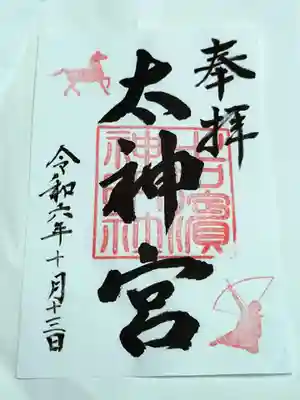 奉拝
太神宮
吉濱
神明社
令和六年十月十三日